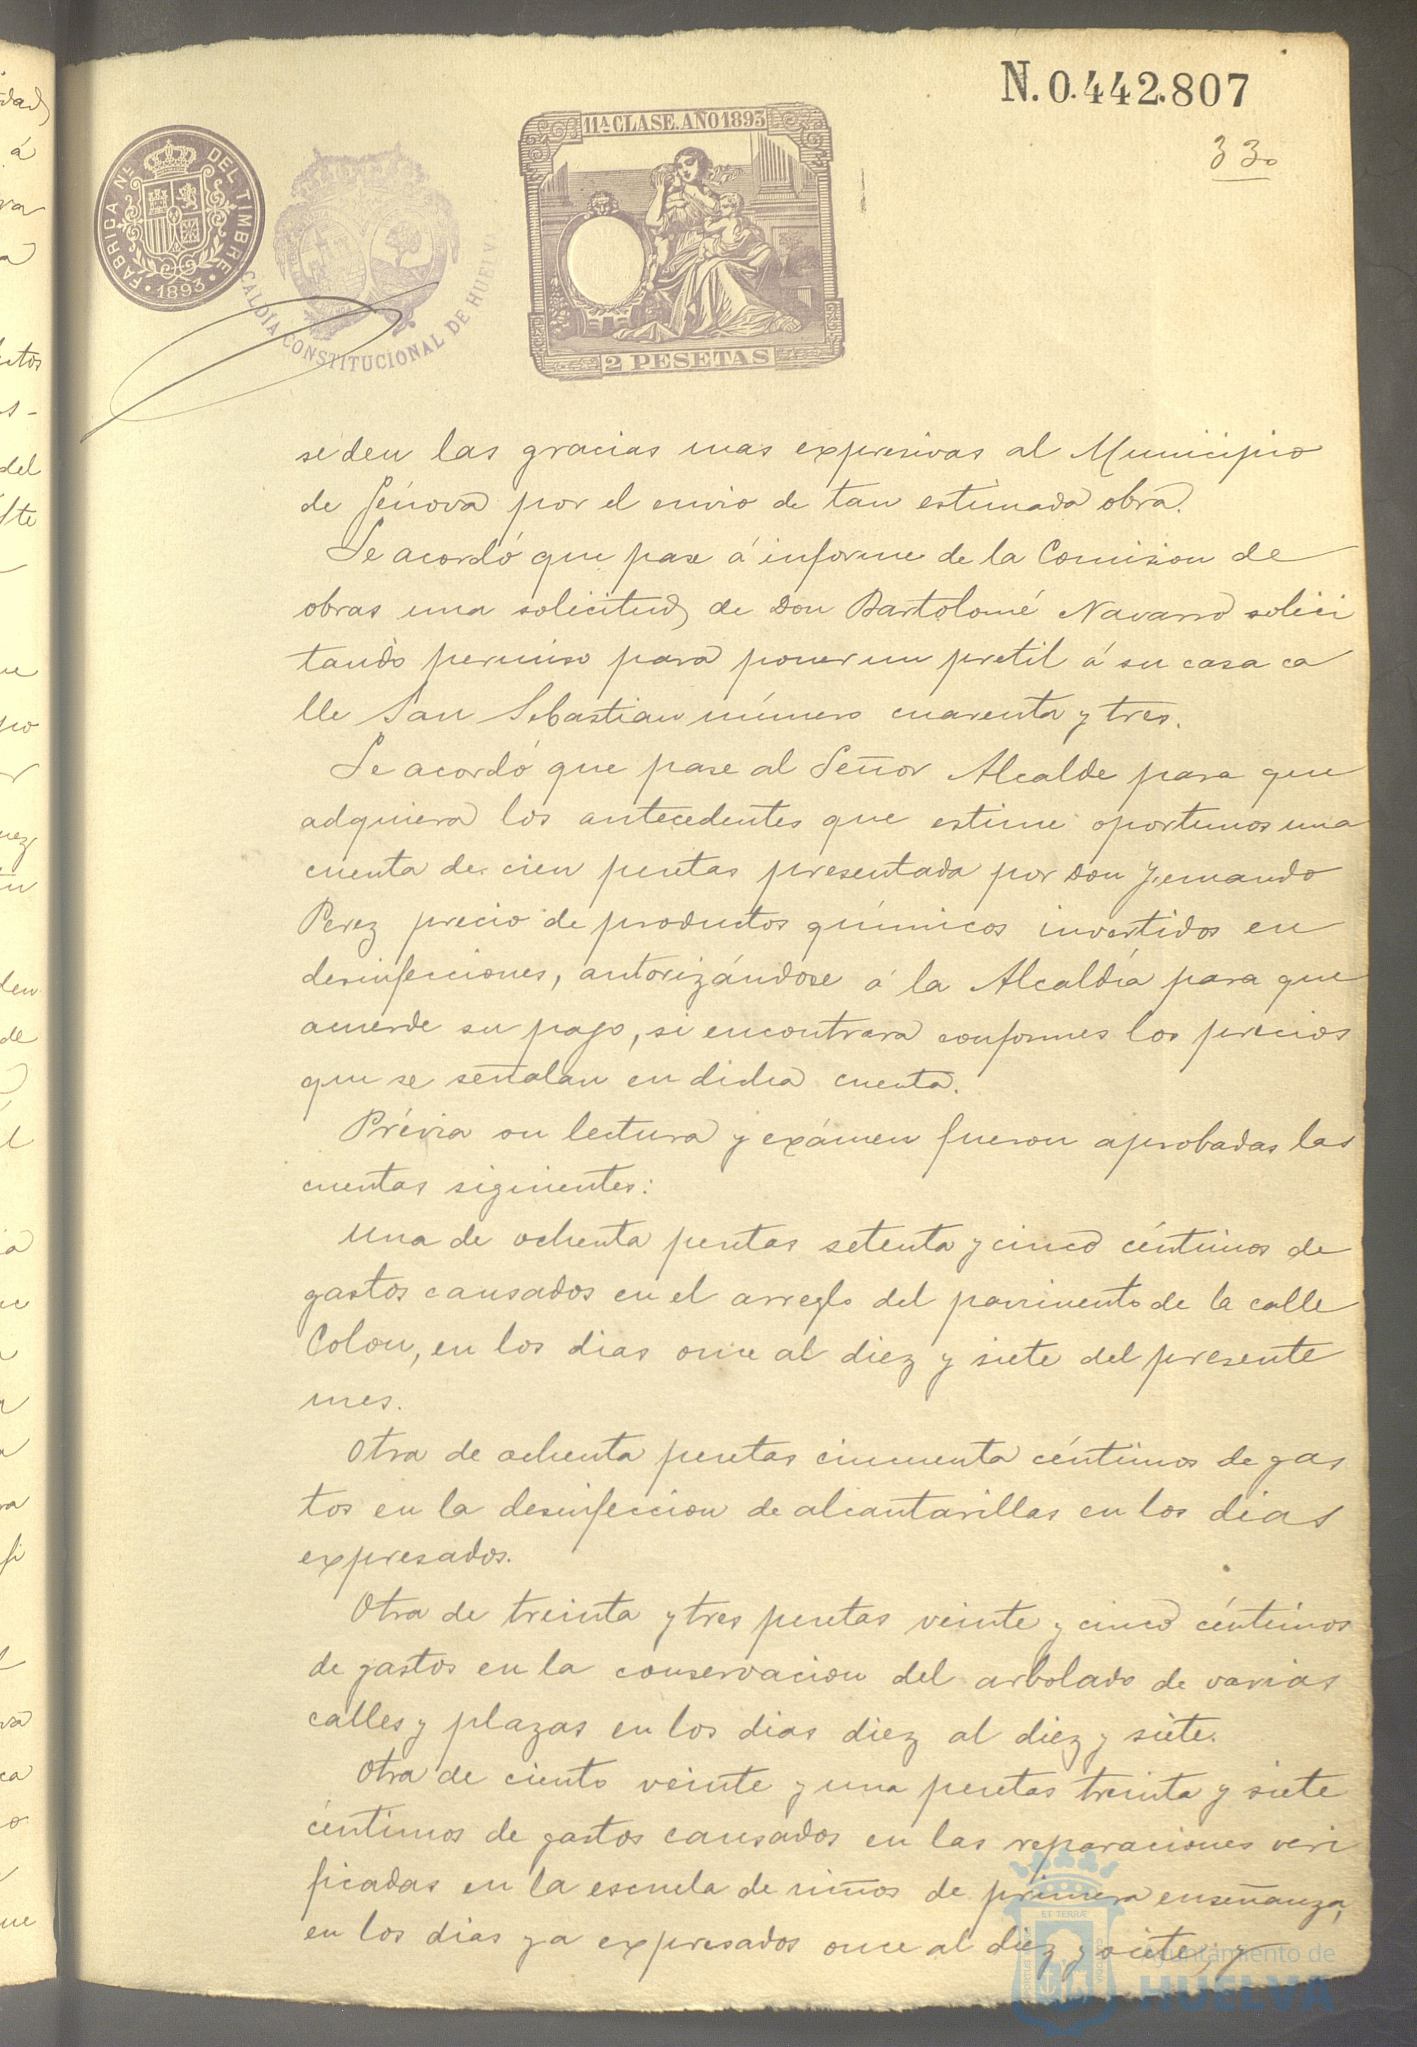 N. 0.442.807
33
11ª CLASE. AÑO 1893
FABRICA Nª DEL TIMBRE
· 1893 ·
ALCALDÍA CONSTITUCIONAL DE HUELVA
2 PESETAS
se den las gracias mas expresivas al Municipio
de Génova por el envio de tan estimada obra.
Se acordó que pase á informe de la Comision de
obras una solicitud de Don Bartolomé Navarro solici
tando permiso para poner un pretil á su casa ca
lle San Sebastian número cuarenta y tres.
Se acordó que pase al Señor Alcalde para que
adquiera los antecedentes que estime oportunos una
cuenta de cien pesetas presentada por Don Fernando
Perez precio de productos químicos invertidos en
desinfecciones, autorizándose á la Alcaldía para que
acuerde su pago, si encontrara conformes los precios
que se señalan en dicha cuenta.
Prévia su lectura y exámen fueron aprobadas las
cuentas siguientes:
Una de ochenta pesetas setenta y cinco céntimos de
gastos causados en el arreglo del pavimento de la calle
Colon, en los dias once al diez y siete del presente
mes.
Otra de ochenta pesetas cincuenta céntimos de gas
tos en la desinfeccion de alcantarillas en los dias
expresados.
Otra de treinta y tres pesetas veinte y cinco céntimos
de gastos en la conservacion del arbolado de varias
calles y plazas en los dias diez al diez y siete.
Otra de ciento veinte y una pesetas treinta y siete
céntimos de gastos causados en las reparaciones veri
ficadas en la escuela de niños de primera enseñanza,
en los dias ya expresados once al diez y siete, y
Ayuntamiento de
HUELVA